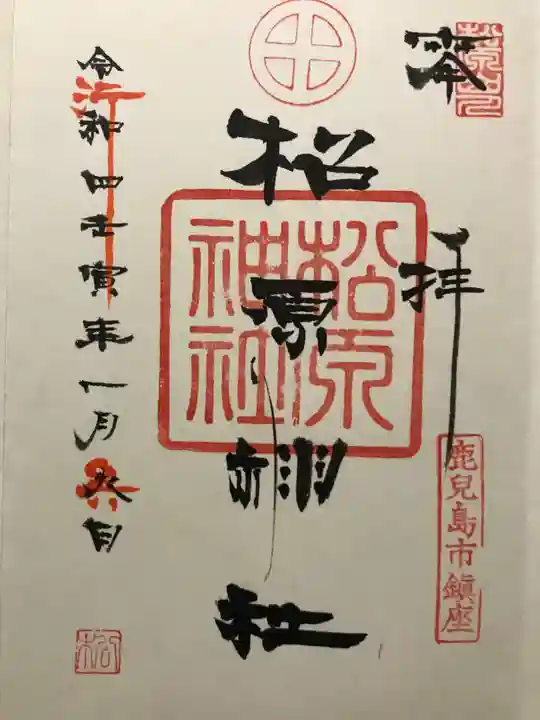 奉拝
鹿兒島市鎭座
松原神社
松原
神社
令和四壬寅年一月日
松